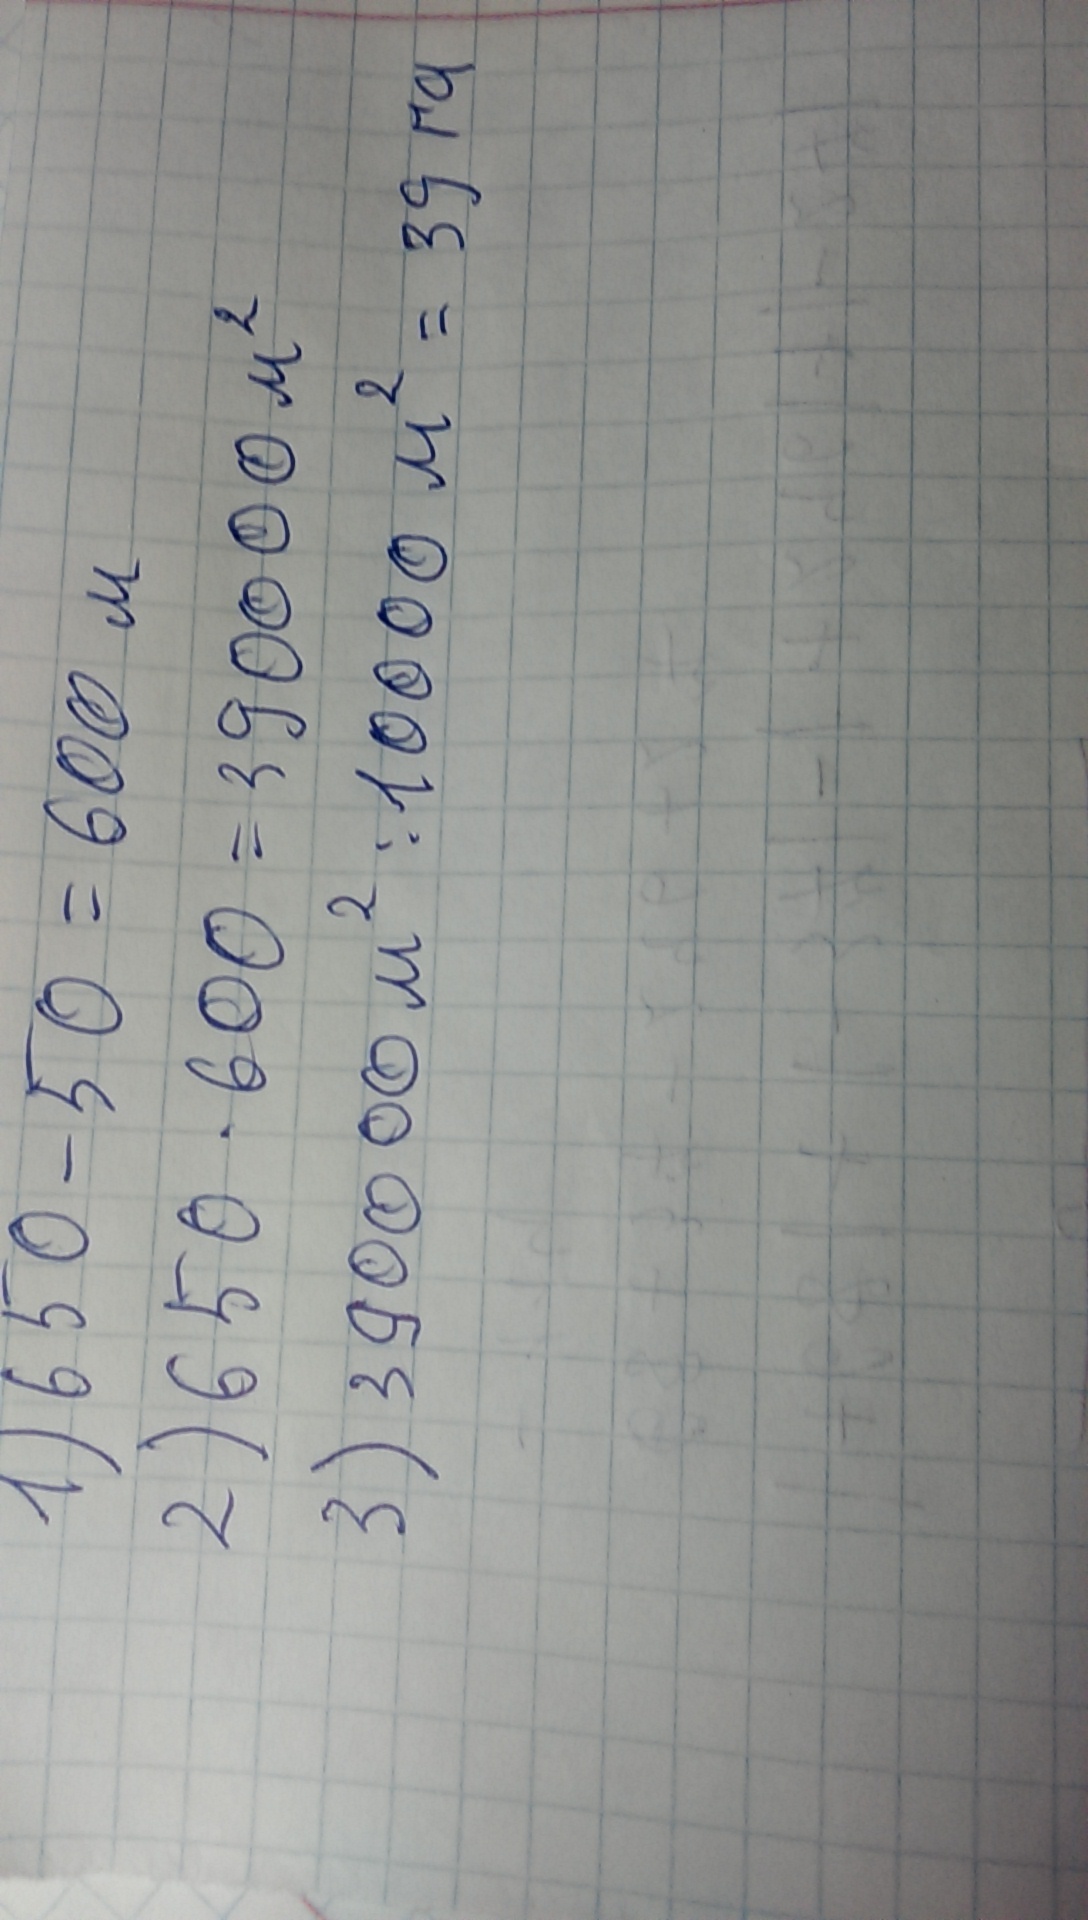 1) 650 - 50 = 600 м
2) 650 · 600 = 390000 м²
3) 390000 м² : 10000 м² = 39 га